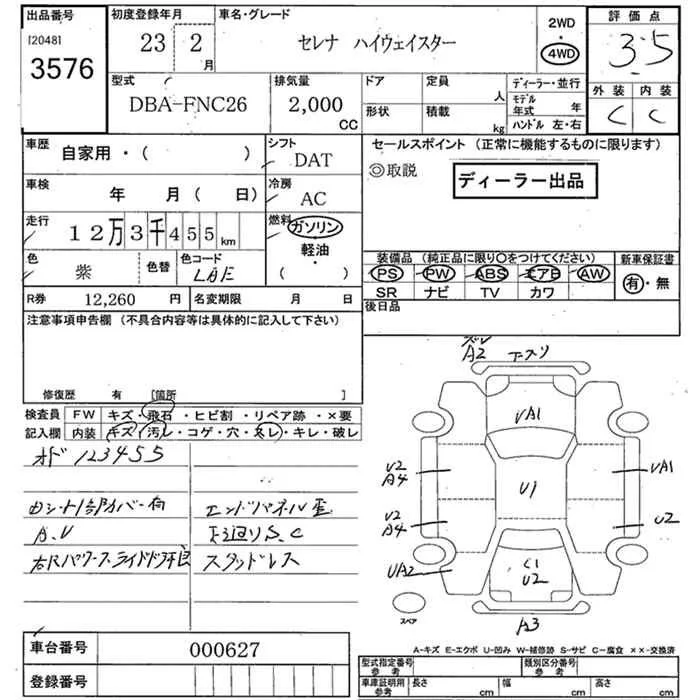 出品番号
[2048]
3576
初度登録年月
23 2
月
車名・グレード
セレナ ハイウェイスター
2WD
・
4WD
評価点
3.5
型式
DBA-FNC26
排気量
2,000
CC
ドア
形状
定員
人
積載
kg
ディーラー・並行
モデル年式 年
ハンドル 左・右
外装
内装
C
C
車歴
自家用・( )
シフト
DAT
車検
年 月( 日)
冷房
AC
走行
12万3千455km
燃料
ガソリン
軽油
・
( )
色
紫
色替
色コード
LAE
R券
12,260 円
名変期限 月 日
セールスポイント (正常に機能するものに限ります)
◎取説
ディーラー出品
装備品 (純正品に限り○をつけてください)
PS PW ABS エアB AW
SR ナビ TV カワ
新車保証書
有・無
後日品
注意事項申告欄 (不具合内容等は具体的に記入して下さい)
修復歴 有 [箇所 ]
検査員
記入欄
FW キズ・飛石・ヒビ割・リペア跡・×要
内装 キズ・汚レ・コゲ・穴・スレ・キレ・破レ
オド 123455
A.V
エンドパネル歪
下廻りS.C
スタッドレス
A2
UA1
U2
A4
U1
UA1
U2
A4
U2
UA2
C1
U2
A3
スペア
A-キズ E-エクボ U-凹み W-補修跡 S-サビ C-腐食 ××-交換済
車台番号
000627
登録番号
型式指定番号
参考
類別区分番号
参考
車庫証明用
参考
長さ cm
幅 cm
高さ cm